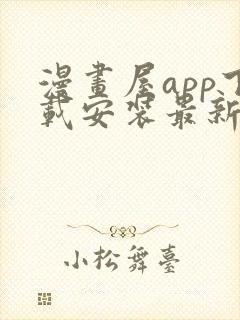 漫畫屋app下
載安裝最新
小松舞臺